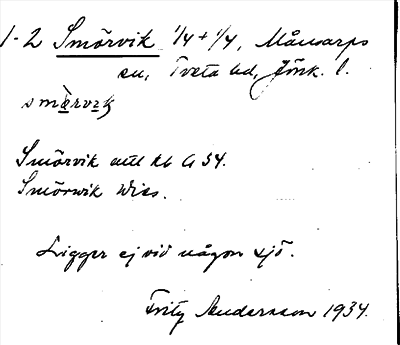 1-2 Smörvik 1/4 + 1/4, Månsarps
sn, Tveta hd, Jönk. l.
smœ̀rvɩk
Smörvik enl kb 34.
Smörwik Wiss.
Ligger ej vid någon sjö.
Fritz Andersson 1934.